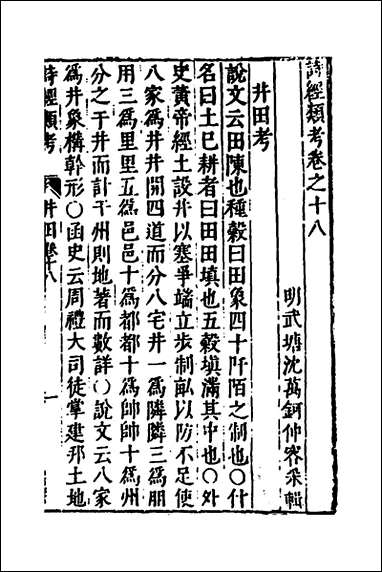 詩經類考卷之十八
明武塘沈萬鈳仲容采輯
井田考
說文云田陳也種穀曰田象四十阡陌之制也〇什
名曰土巳耕者曰田田塡也五穀塡滿其中也〇外
史黃帝經土設井以塞爭端立步制畝以防不足使
八家爲井井開四道而分八宅井一爲隣隣三爲朋
用三爲里里五爲邑邑十爲都都十爲帥帥十爲州
分之于井而計于州則地著而數詳〇說文云八家
爲井象構幹形〇函史云周禮大司徒掌建邦土地
詩經類考
井田卷十八
一